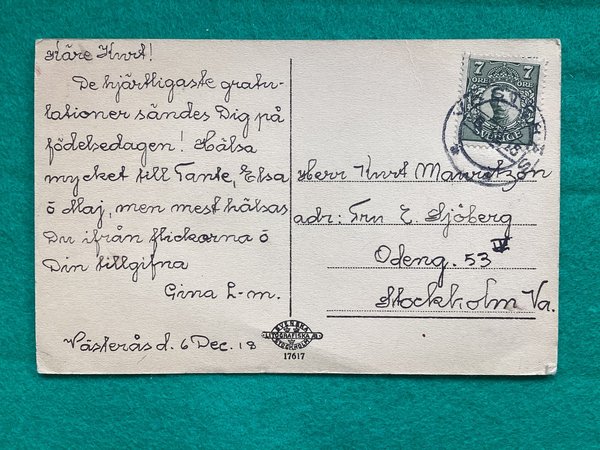 Käre Kurt!
De hjärtligaste gratu-
lationer sändes Dig på
födelsedagen! Hälsa
mycket till Tante, Elsa
o Maj, men mest hälsas
Du ifrån flickorna o
Din tillgifna
Gina L-m.
Västerås d. 6 Dec. 18
7 7
ÖRE ÖRE
SVERIGE
Herr Kurt Mauritzon
adr: Fru E. Sjöberg
Odeng. 53 IV
Stockholm Va.
SVENSKA
LITOGRAFISKA AB
STOCKHOLM
17617